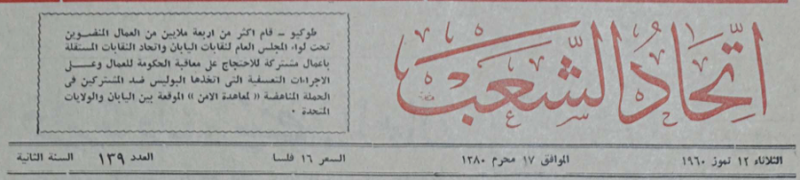 اتحاد الشعب
طوكيو ــ قام اكثر من اربعة ملايين من العمال المنضوين
تحت لواء المجلس العام لنقابات اليابان واتحاد النقابات المستقلة
باعمال مشتركة للاحتجاج على معاقبة الحكومة للعمال وعلى
الاجراءات التعسفية التي اتخذها البوليس ضد المشتركين في
الحملة المناهضة «لمعاهدة الامن» الموقعة بين اليابان والولايات
المتحدة ٠
الثلاثاء ١٢ تموز ١٩٦٠ الموافق ١٧ محرم ١٣٨٠ السعر ١٦ فلسا العدد ١٣٩ السنة الثانية